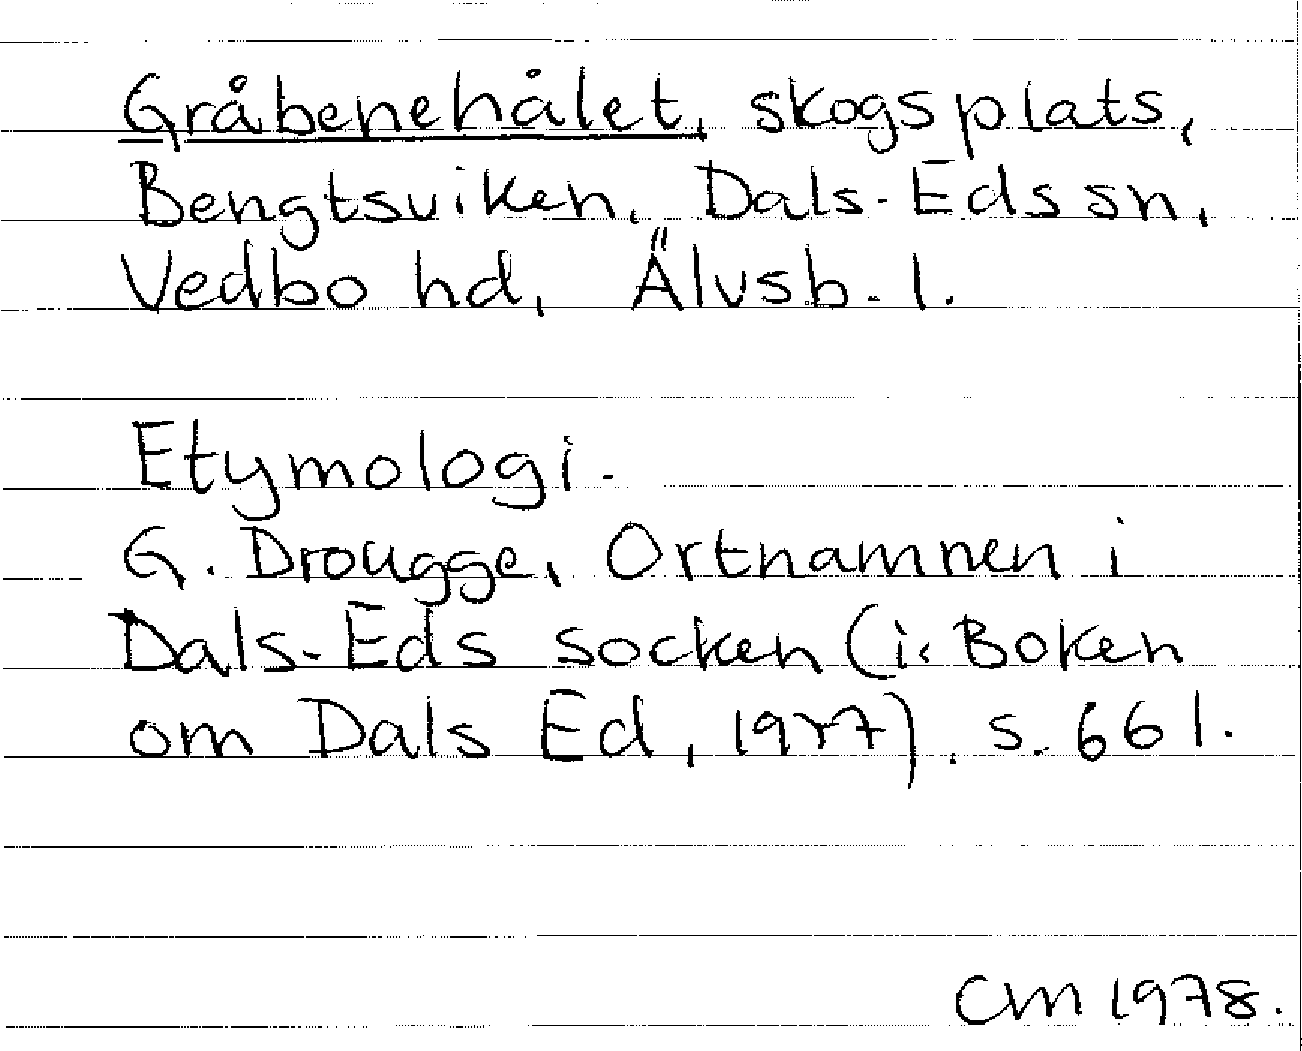 Gråbenehålet, skogsplats,
Bengtsviken, Dals-Eds sn,
Vedbo hd, Älvsb. l.
Etymologi.
G. Drougge, Ortnamnen i
Dals-Eds socken (i: Boken
om Dals Ed, 1977), s. 661.
CM 1978.